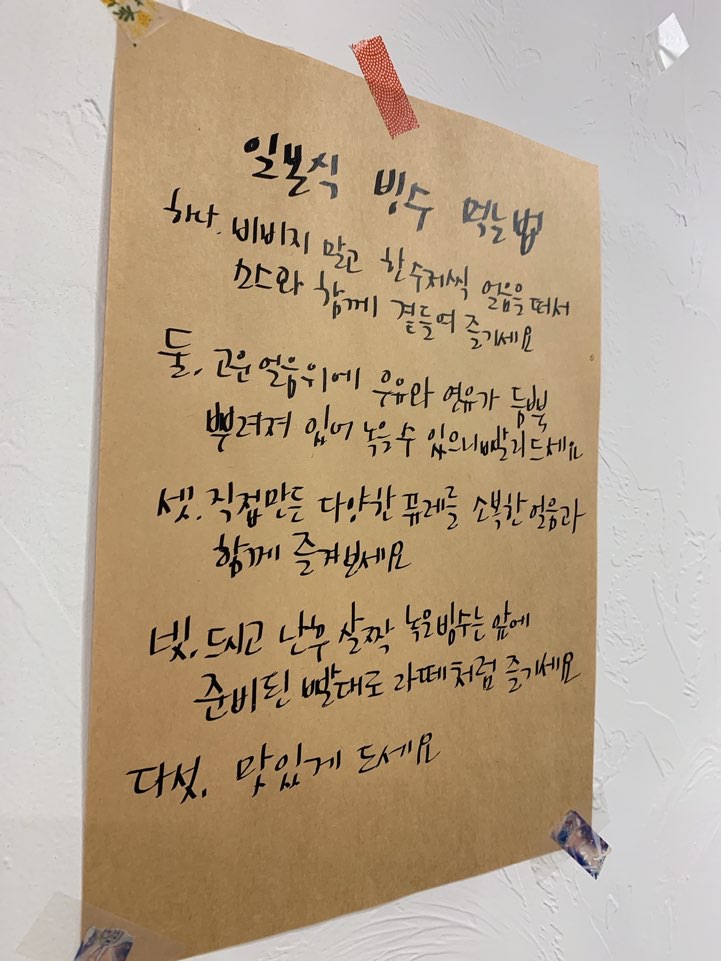 일본식 빙수 먹는법
하나. 비비지 말고 한수저씩 얼음을 떠서
소스와 함께 곁들여 즐기세요
둘. 고운얼음위에 우유와 연유가 듬뿍
뿌려져 있어 녹을수 있으니빨리드세요
셋. 직접만든 다양한 퓨레를 소복한얼음과
함께 즐겨보세요
넷. 드시고 난후 살짝 녹은빙수는 앞에
준비된 빨대로 라떼처럼 즐기세요
다섯. 맛있게 드세요